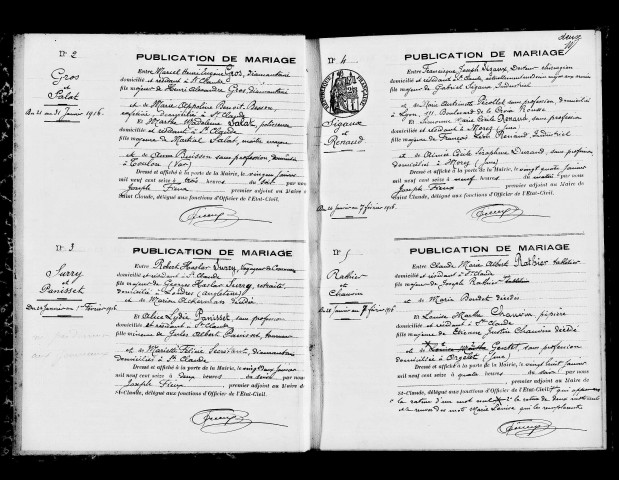 N° 2
Gros
et
Salat
Du 21 au 31 Janvier 1916.
PUBLICATION DE MARIAGE
Entre Marcel Henri Eugène Gros, diamantaire
domicilié et résidant à St Claude
fils majeur de Henri Alexandre Gros, diamantaire
et de Marie Appoline Benoit
domiciliés à St Claude
Et Marthe Madeleine Salat, polisseuse
domiciliée et résidant à St Claude
fille majeure de Martial Salat,
et de Anna Buisson sans profession, domiciliée
à Toulon (Var)
Dressé et affiché à la porte de la Mairie, le vingt un janvier
mil neuf cent seize à trois heures du soir par nous
Joseph Fieux premier adjoint au Maire de
Saint Claude, délégué aux fonctions d'Officier de l'Etat-Civil.
N° 3
Surry
et
Panisset
Du 22 Janvier au 1er Février 1916
PUBLICATION DE MARIAGE
Entre Robert Haslar Surry, voyageur de Commerce
domicilié et résidant à St Claude
fils majeur de Georges Haslar Surry, retraité,
domicilié à Londres (Angleterre)
et de Marion Ackerman décédée
Et Alice Lydie Panisset, sans profession
domiciliée et résidant à St Claude
fille mineure de Jules Albert Panisset, tourneur
et de Mariette Féline diamantaire
domiciliés à St Claude
Dressé et affiché à la porte de la Mairie, le vingt deux janvier
mil neuf cent seize à deux heures du soir, par nous
Joseph Fieux premier adjoint au Maire de
St-Claude, délégué aux fonctions d'Officier de l'Etat-Civil.
deux
N° 4
Sigaux
et
Renaud
Du 24 Janvier au 7 février 1916
PUBLICATION DE MARIAGE
Entre Francisque Joseph Sigaux, Docteur chirurgien
domicilié et résidant à St Claude, actuellement
fils majeur de Gabriel Sigaux Industriel
et de Marie Antoinette sans profession, domiciliés
à Lyon, Boulevard de la Croix Rousse
Et Suzanne Marie Cécile Renaud, sans profession
domiciliée et résidant à Morez (Jura)
fille majeure de François Renaud, Industriel
et de Aimée Cécile Séraphine Durand, sans profession
domiciliés à Morez (Jura)
Dressé et affiché à la porte de la Mairie, le vingt quatre janvier
mil neuf cent seize à neuf heures du matin, par nous
Joseph Fieux premier adjoint au Maire de
Saint Claude, délégué aux fonctions d'Officier de l'Etat-Civil.
N° 5
Rathier
et
Chauvin
PUBLICATION DE MARIAGE
Entre Claude Marie Albert Rathier
domicilié et résidant à St Claude
fils majeur de Joseph Rathier
et de Marie Bondet décédés
Et Louise Marthe Chauvin pipière
domiciliée et résidant à St Claude
fille mineure de Etienne Justin Chauvin décédé
et de sans profession
domiciliée à Orgelet (Jura)
Dressé et affiché à la porte de la Mairie, le vingt huit janvier
mil neuf cent seize à quatre heures du soir par nous
premier adjoint au Maire de
St-Claude, délégué aux fonctions d'Officier de l'Etat-Civil.
la rature d'un mot nul la rature de deux
renvoi des mots Marie Louise qui les remplacent